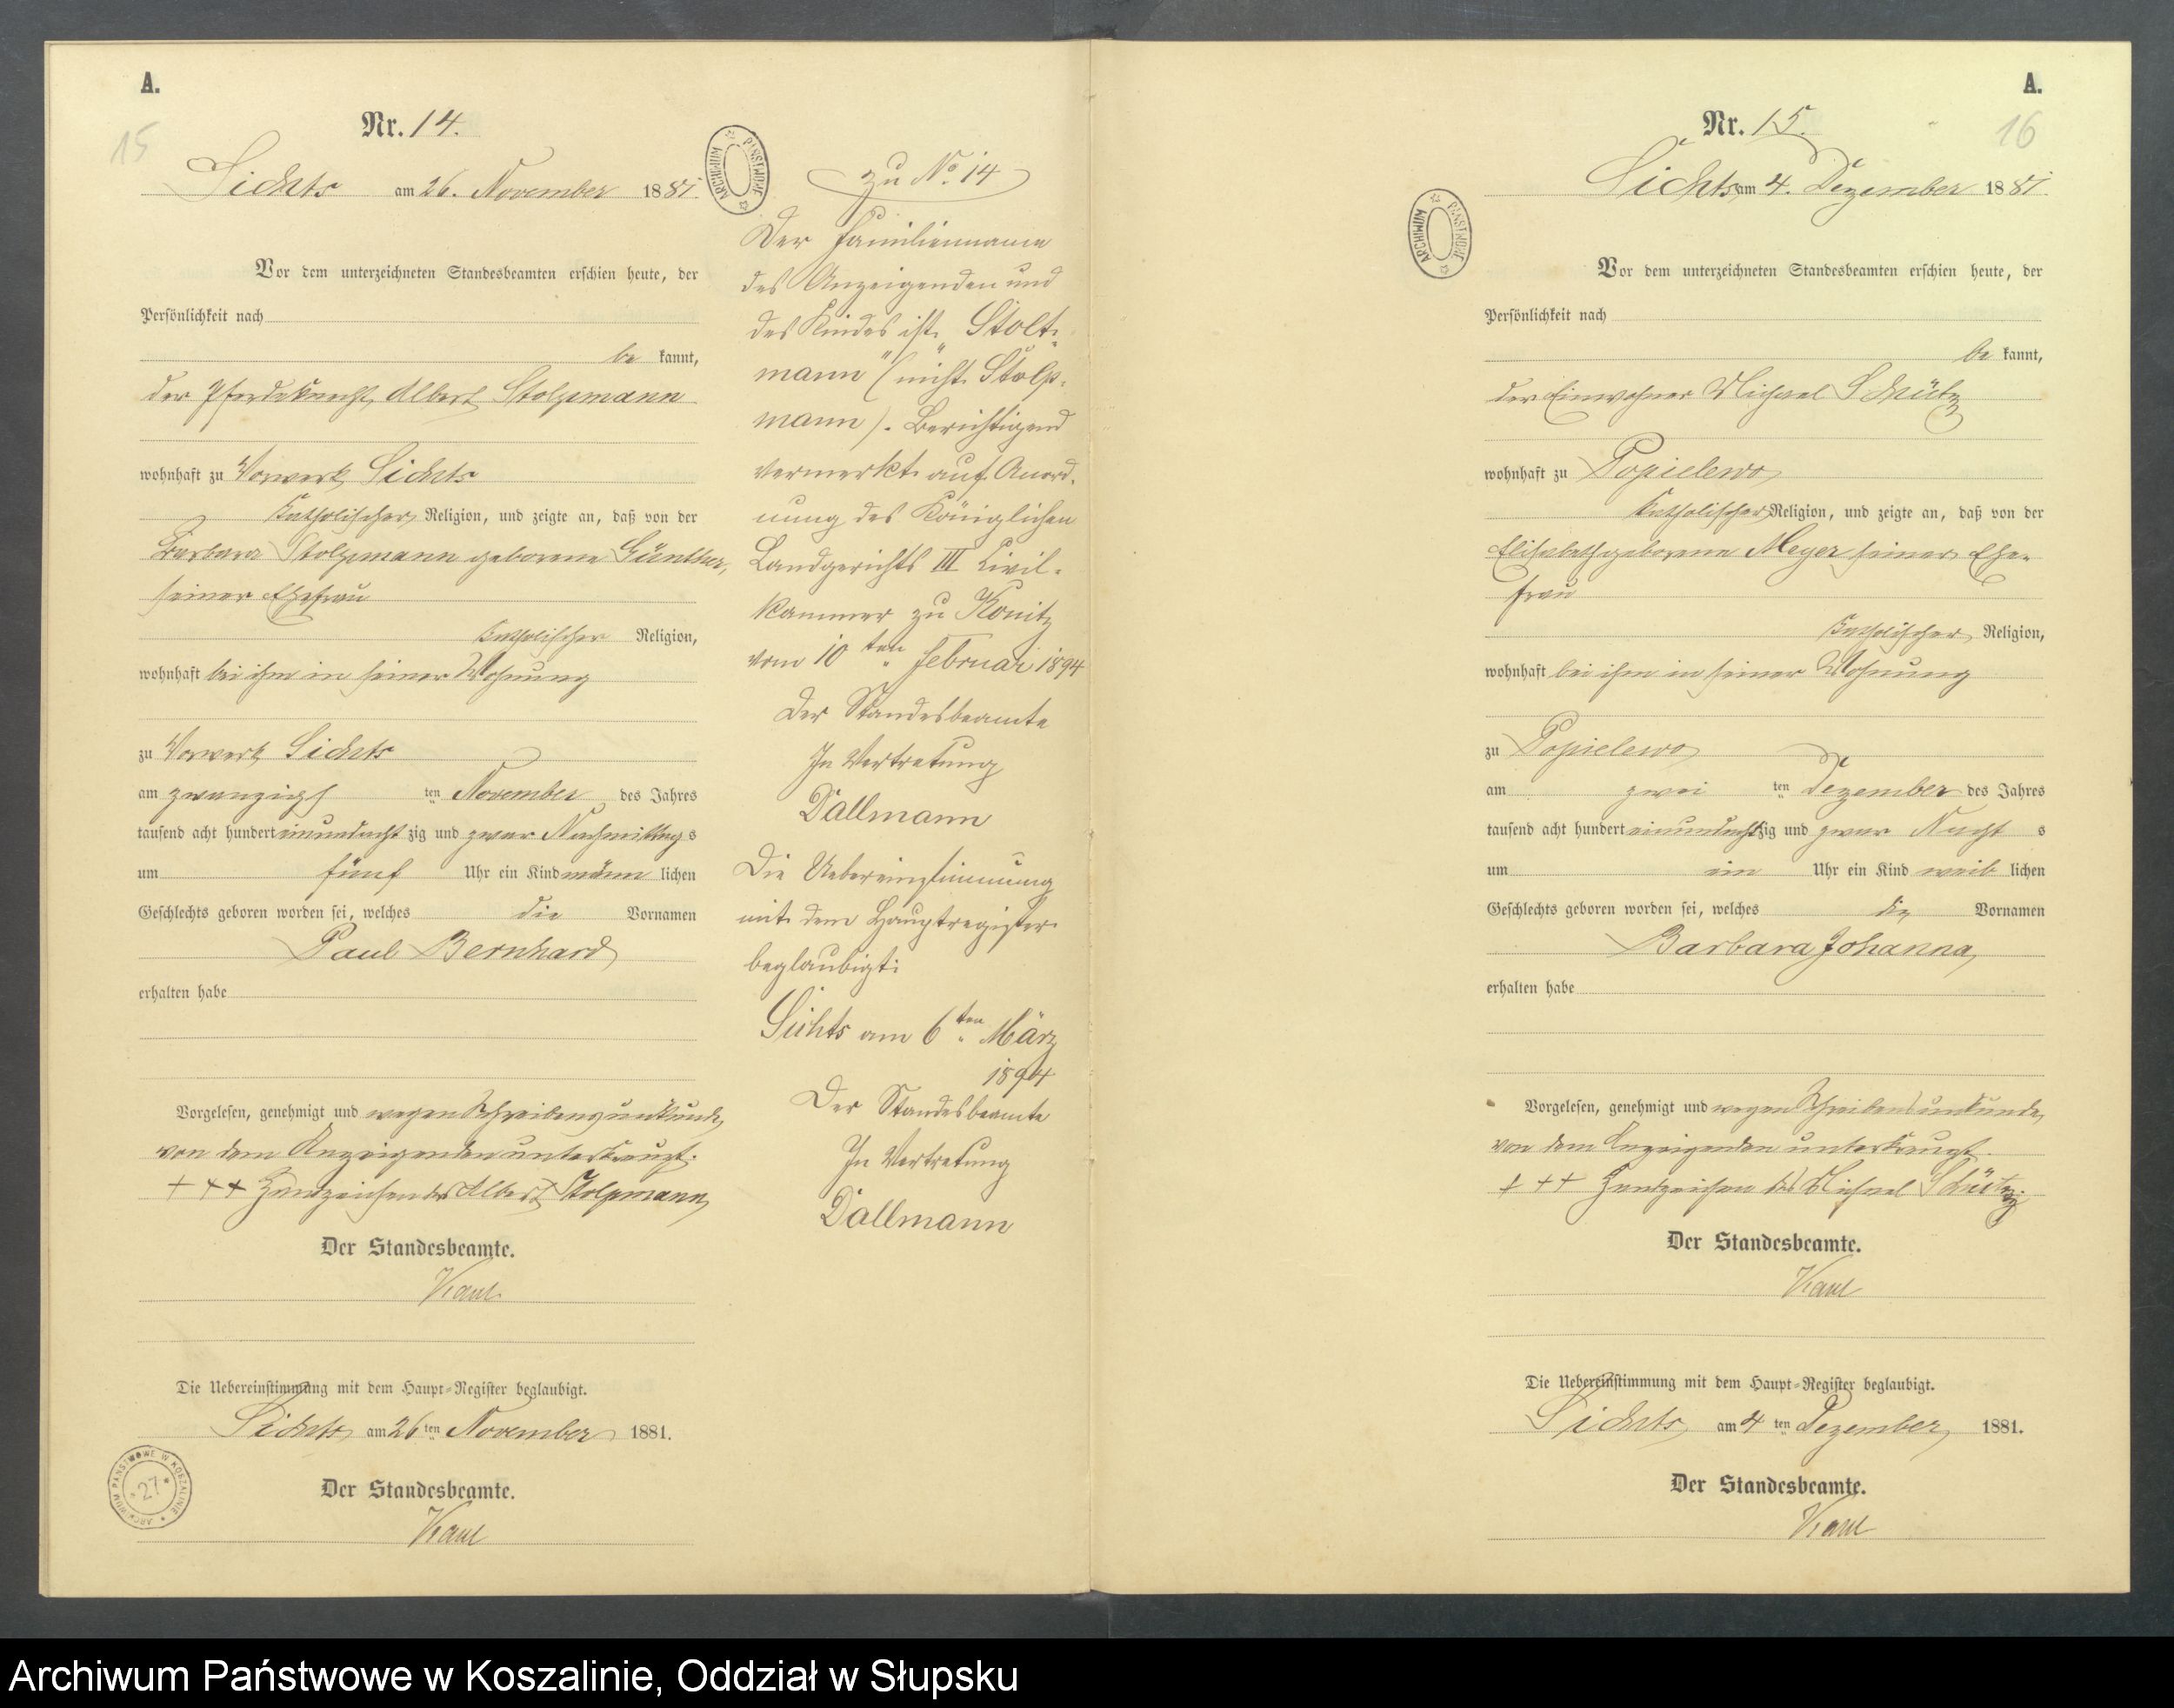 A.
15
Nr. 14.
Lichts am 26. November 1881.
Vor dem unterzeichneten Standesbeamten erschien heute, der
Persönlichkeit nach
be kannt,
der Pferdeknecht Albert Stolpmann
wohnhaft zu Vorwerk Sichts
katholischer Religion, und zeigte an, daß von der
Barbara Stolpmann geborene Günther,
seiner Ehefrau
katholischer Religion,
wohnhaft bei ihm in seiner Wohnung
zu Vorwerk Sichts
am zwanzigs ten November des Jahres
tausend acht hundert einundacht zig und zwar Nachmittag s
um fünf Uhr ein Kind männ lichen
Geschlechts geboren worden sei, welches die Vornamen
Paul Bernhard
erhalten habe
Vorgelesen, genehmigt und wegen Schreibensunkunde
von dem Anzeigenden unterkreuzt.
+ + + Handzeichen des Albert Stolpmann
Der Standesbeamte.
Kaul
Die Uebereinstimmung mit dem Haupt-Register beglaubigt.
Sichts am 26 ten November 1881.
Der Standesbeamte.
Kaul
ARCHIWUM PAŃSTWOWE W KOSZALINIE
* 27 *
ARCHIWUM PAŃSTWOWE
zu No. 14
Der Familienname
des Anzeigenden und
des Kindes ist „Stolt-
mann" (nicht Stolp-
mann). Berichtigend
vermerkt auf Anord-
nung des Königlichen
Landgerichts III Civil-
kammer zu Konitz
vom 10 ten Februar 1894
Der Standesbeamte
In Vertretung
Dallmann
Die Uebereinstimmung
mit dem Hauptregister
beglaubigt:
Sichts am 6 ten März
1894
Der Standesbeamte
In Vertretung
Dallmann
A.
16
Nr. 15.
Sichts am 4. Dezember 1881.
ARCHIWUM PAŃSTWOWE
Vor dem unterzeichneten Standesbeamten erschien heute, der
Persönlichkeit nach
be kannt,
der Einwohner Michael Schütz
wohnhaft zu Popielewo
katholischer Religion, und zeigte an, daß von der
Elisabeth geborene Meyer seiner Ehe-
frau
katholischer Religion,
wohnhaft bei ihm in seiner Wohnung
zu Popielewo
am zwei ten Dezember des Jahres
tausend acht hundert einundachtzig und zwar Nacht s
um ein Uhr ein Kind weib lichen
Geschlechts geboren worden sei, welches die Vornamen
Barbara Johanna
erhalten habe
Vorgelesen, genehmigt und wegen Schreibensunkunde
von dem Anzeigenden unterkreuzt.
+ + + Handzeichen des Michael Schütz
Der Standesbeamte.
Kaul
Die Uebereinstimmung mit dem Haupt-Register beglaubigt.
Sichts am 4 ten Dezember 1881.
Der Standesbeamte.
Kaul
Archiwum Państwowe w Koszalinie, Oddział w Słupsku